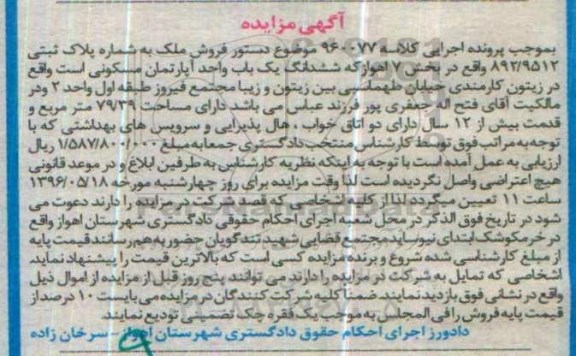 آگهی مزایده
بموجب پرونده اجرایی کلاسه ۹۶۰۰۷۷ موضوع دستور فروش ملک به شماره پلاک ثبتی
۸۹۲/۹۵۱۲ واقع در بخش ۷ اهواز که ششدانگ یک باب واحد آپارتمان مسکونی است واقع
در زیتون کارمندی خیابان طهماسبی بین زیتون و زیبا مجتمع فیروز طبقه اول واحد ۲ ودر
مالکیت آقای فتح اله جعفری پور فرزند عباس می باشد دارای مساحت ۷۹/۳۹ متر مربع و
قدمت بیش از ۱۲ سال دارای دو اتاق خواب ، هال پذیرایی و سرویس های بهداشتی که با
توجه به مراتب فوق توسط کارشناس منتخب دادگستری جمعا به مبلغ ۱/۵۸۷/۸۰۰/۰۰۰ ریال
ارزیابی به عمل آمده است با توجه به اینکه نظریه کارشناس به طرفین ابلاغ و در موعد قانونی
هیچ اعتراضی واصل نگردیده است لذا وقت مزایده برای روز چهارشنبه مورخه ۱۳۹۶/۰۵/۱۸
ساعت ۱۱ تعیین میگردد لذا از کلیه اشخاصی که قصد شرکت در مزایده را دارند دعوت می
شود در تاریخ فوق الذکر در محل شعبه اجرای احکام حقوقی دادگستری شهرستان اهواز واقع
در خرمکوشک ابتدای نیوساید مجتمع قضایی شهید تندگویان حضور به هم رسانند قیمت پایه
از مبلغ کارشناسی شده شروع و برنده مزایده کسی است که بالاترین قیمت را پیشنهاد نماید.
اشخاصی که تمایل به شرکت در مزایده را دارند می توانند پنج روز قبل از مزایده از اموال ذیل
واقع در نشانی فوق بازدید نمایند. ضمنا کلیه شرکت کنندگان در مزایده می بایست ۱۰ درصد از
قیمت پایه فروش را فی المجلس به موجب یک فقره چک تضمینی تودیع نمایند.
دادورز اجرای احکام حقوق دادگستری شهرستان اهواز- سرخان زاده